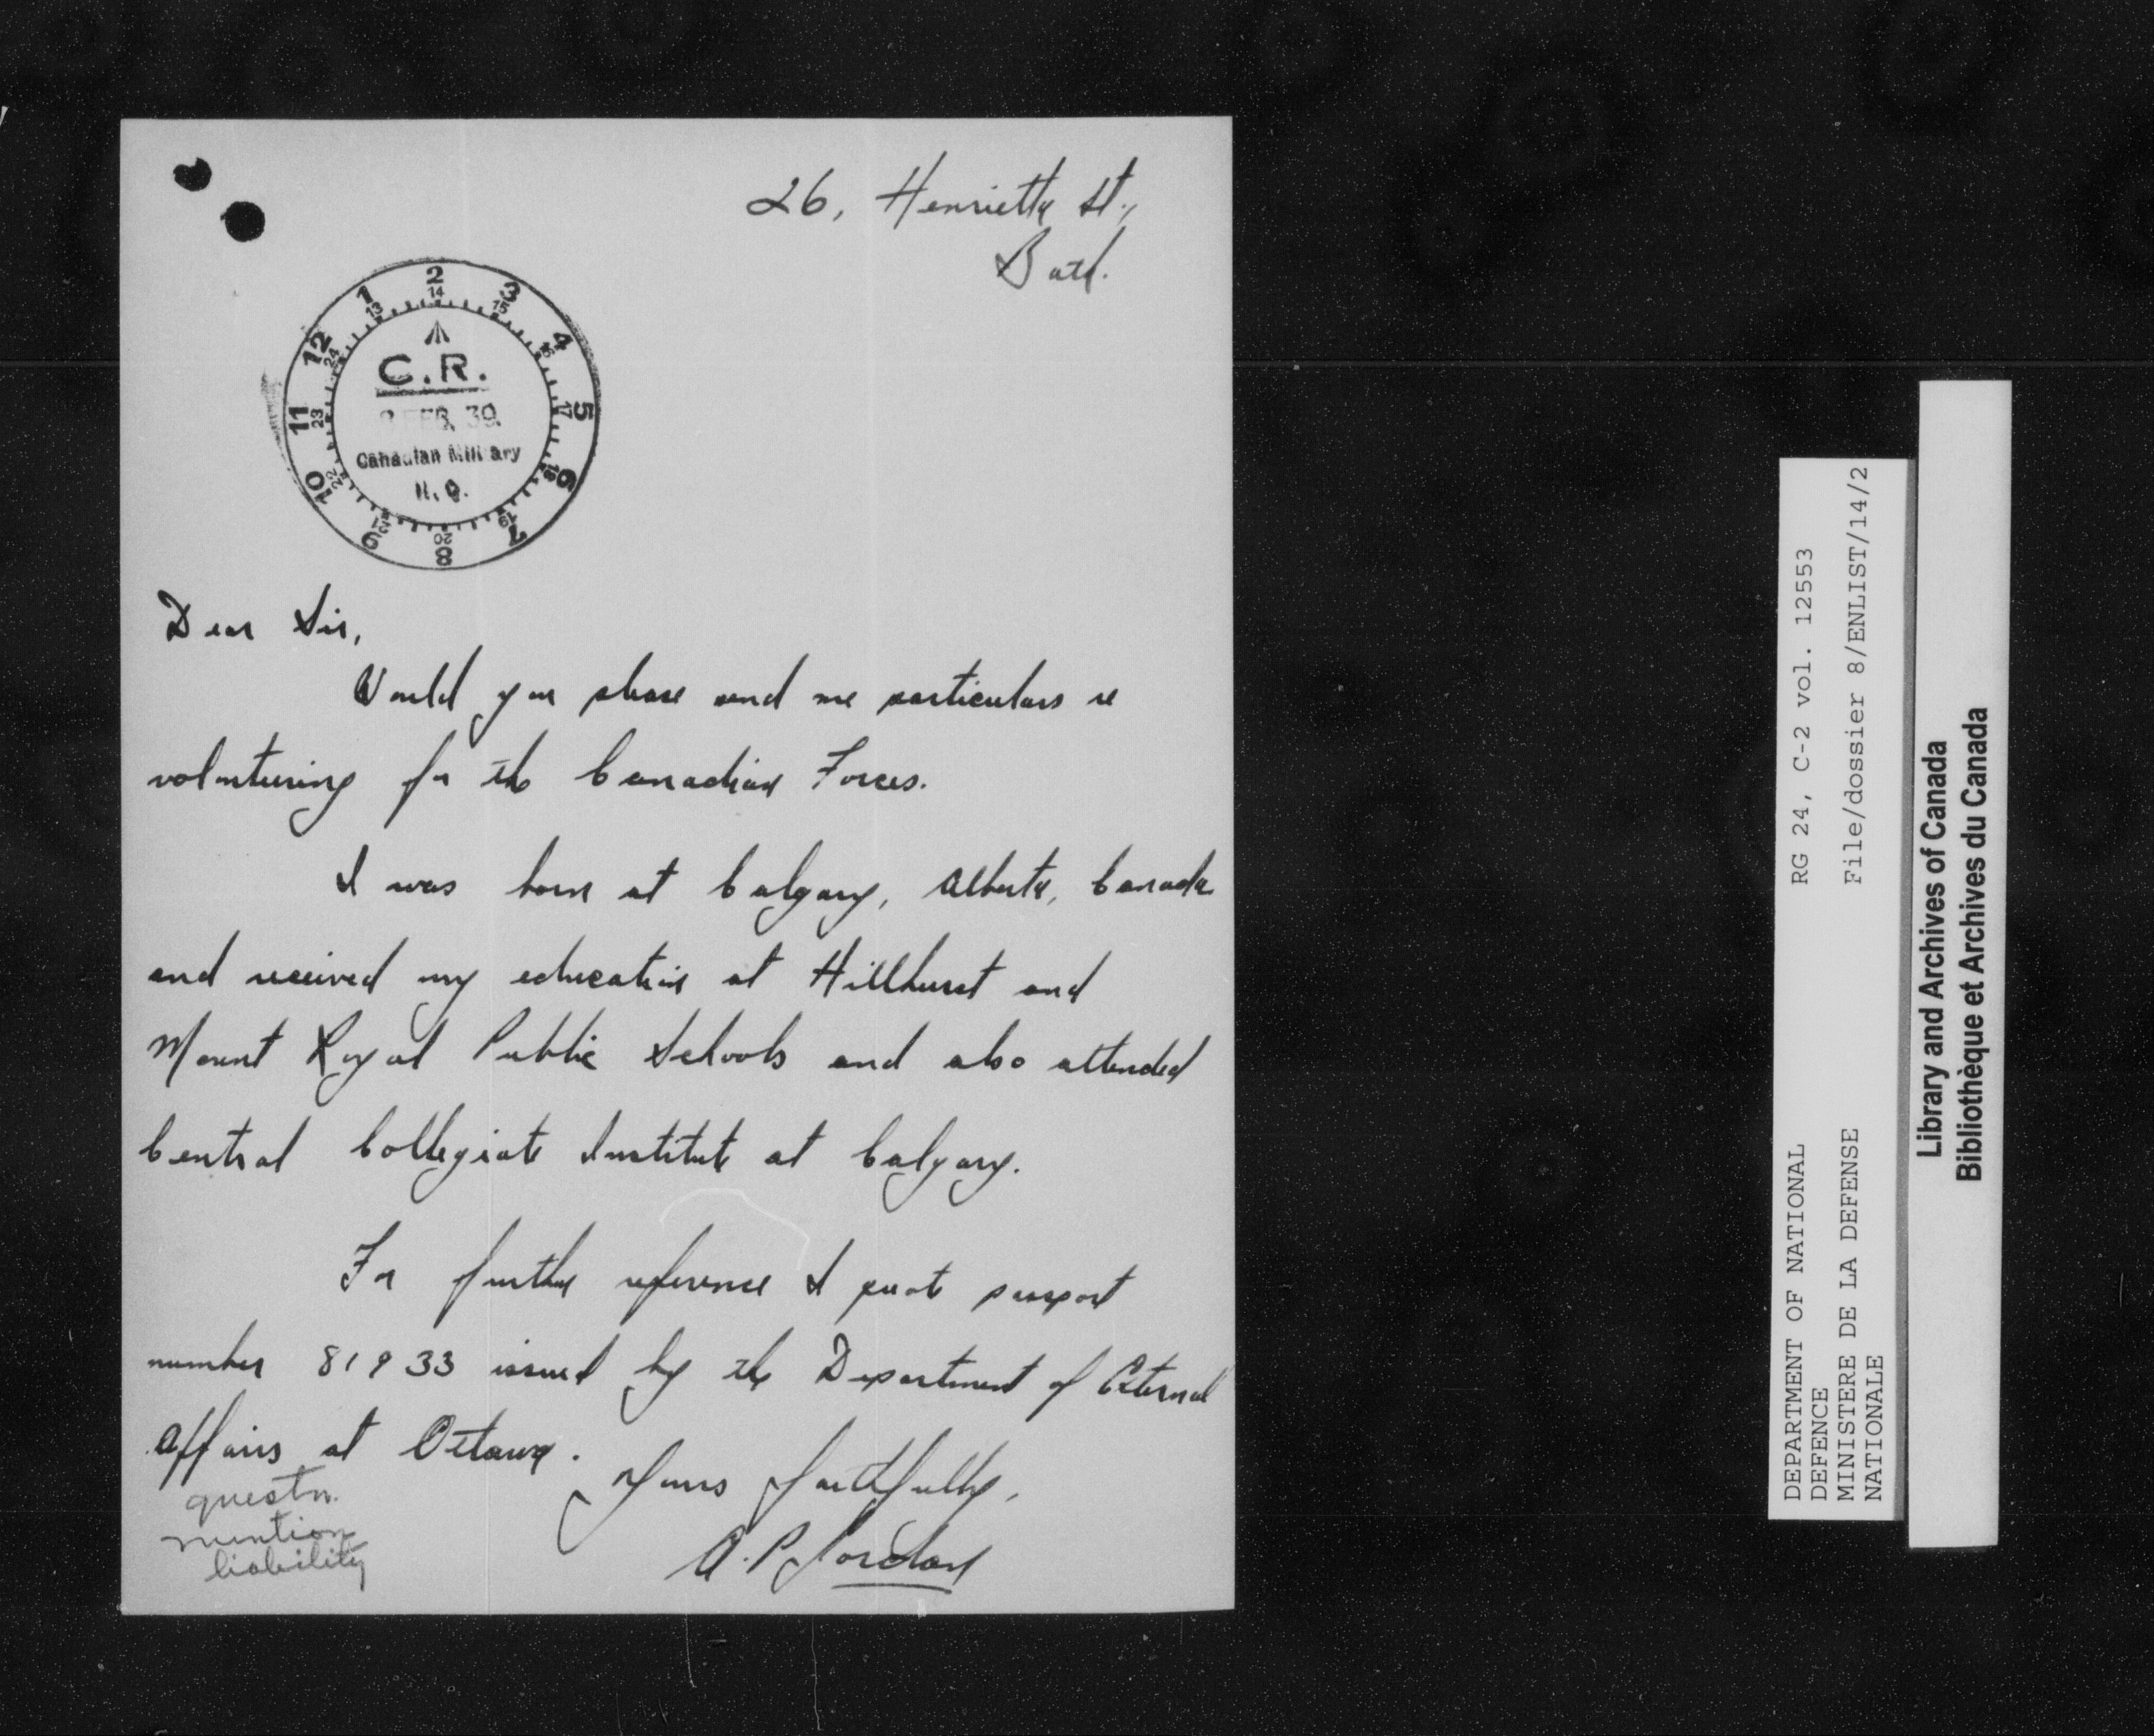 26, Henrietta St.,
Bath.
2
1 3
14
13 15
12 4
24 16
C.R.
FEB. 39.
11 23 17 5
Canadian Military
H.Q.
10 22 18 6
21 19
9 20 7
8
Dear Sir,
Would you please send me particulars re
voluntering for the Canadian Forces.
I was born at Calgary, Alberta, Canada
and received my education at Hillhurst and
Mount Royal Public Schools and also attended
Central Collegiate Institute at Calgary.
For further reference I quote passport
number 81933 issued by the Department of External
Affairs at Ottawa.
Yours faithfully,
A.P. Jordan
questn.
mention
liability
RG 24, C-2 vol. 12553
File/dossier 8/ENLIST/14/2
DEPARTMENT OF NATIONAL
DEFENCE
MINISTERE DE LA DEFENSE
NATIONALE
Library and Archives of Canada
Bibliothèque et Archives du Canada